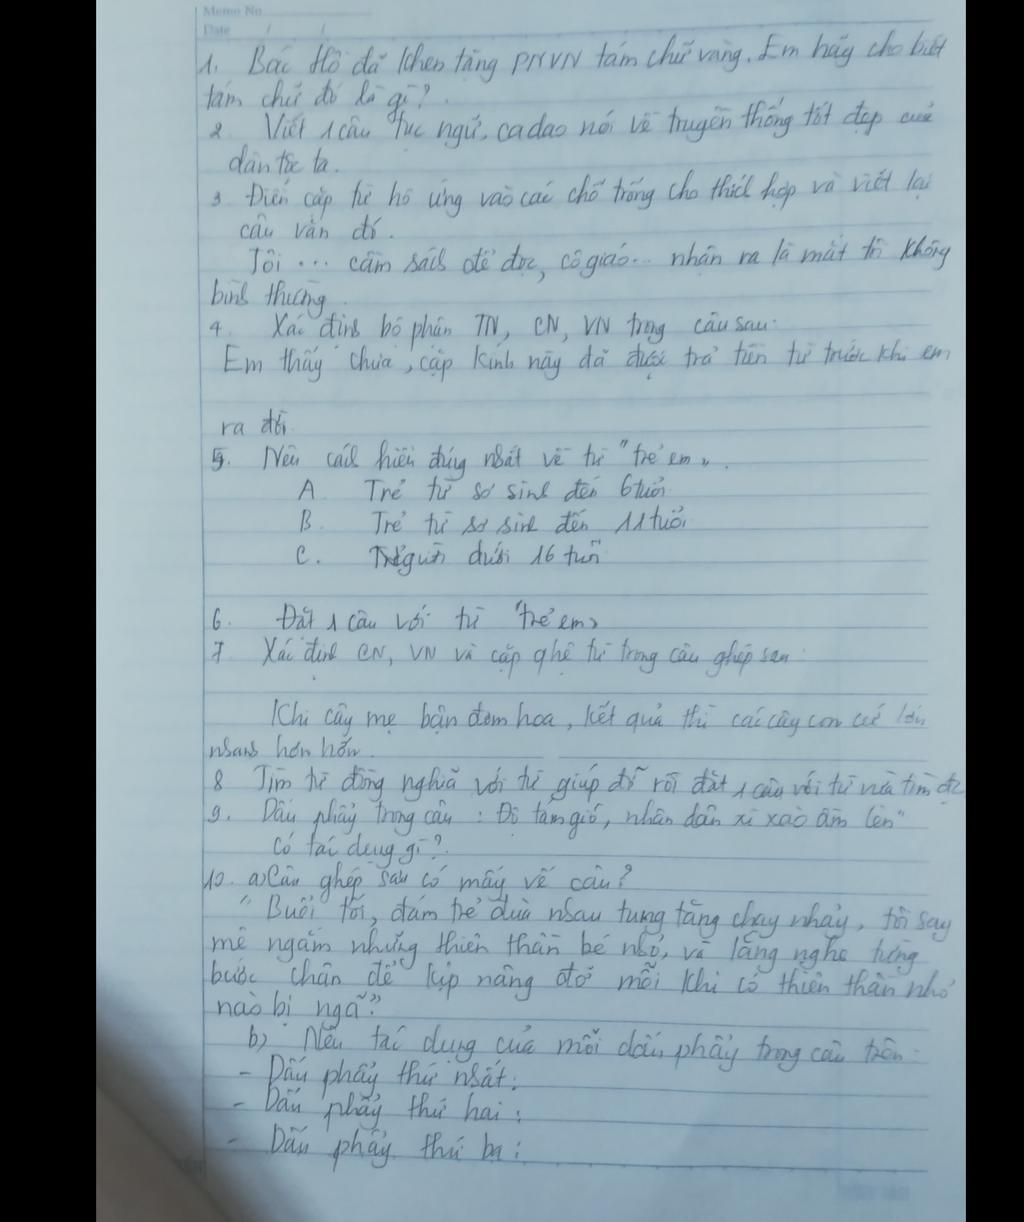 Memo No.
Date / /
1. Bác Hồ đã khen tặng PNVN tám chữ vàng. Em hãy cho biết
tám chữ đó là gì?
2 Viết 1 câu tục ngữ, ca dao nói về truyền thống tốt đẹp của
dân tộc ta.
3. Điền cặp từ hô ứng vào các chỗ trống cho thích hợp và viết lại
câu văn đó.
Tôi ... cầm sách để đọc, cô giáo... nhận ra là mắt tôi không
bình thường
4. Xác định bộ phận TN, CN, VN trong câu sau:
Em thấy chưa, cặp kính này đã được trả tiền từ trước khi em
ra đời
5. Nêu cách hiểu đúng nhất về từ "trẻ em".
A. Trẻ từ sơ sinh đến 6 tuổi
B. Trẻ từ sơ sinh đến 11 tuổi
C. Người dưới 16 tuổi
6. Đặt 1 câu với từ "trẻ em"
7 Xác định CN, VN và cặp ghệ từ trong câu ghép sau:
Khi cây mẹ bận đơm hoa, kết quả thì các cây con cứ lớn
nhanh hơn hớn.
8 Tìm từ đồng nghĩa với từ giúp đỡ rồi đặt 1 câu với từ vừa tìm đc
9. Dấu phẩy trong câu: Độ tám giờ, nhân dân xì xào ầm lên"
có tác dụng gì?
10. a) Câu ghép sau có mấy vế câu?
"Buổi tối, đám trẻ đùa nhau tung tăng chạy nhảy, tôi say
mê ngắm những thiên thần bé nhỏ, và lắng nghe từng
bước chân để kịp nâng đỡ mỗi khi có thiên thần nhỏ
nào bị ngã"?
b) Nêu tác dụng của mỗi dấu phẩy trong câu trên:
- Dấu phẩy thứ nhất:
- Dấu phẩy thứ hai:
- Dấu phẩy thứ ba: